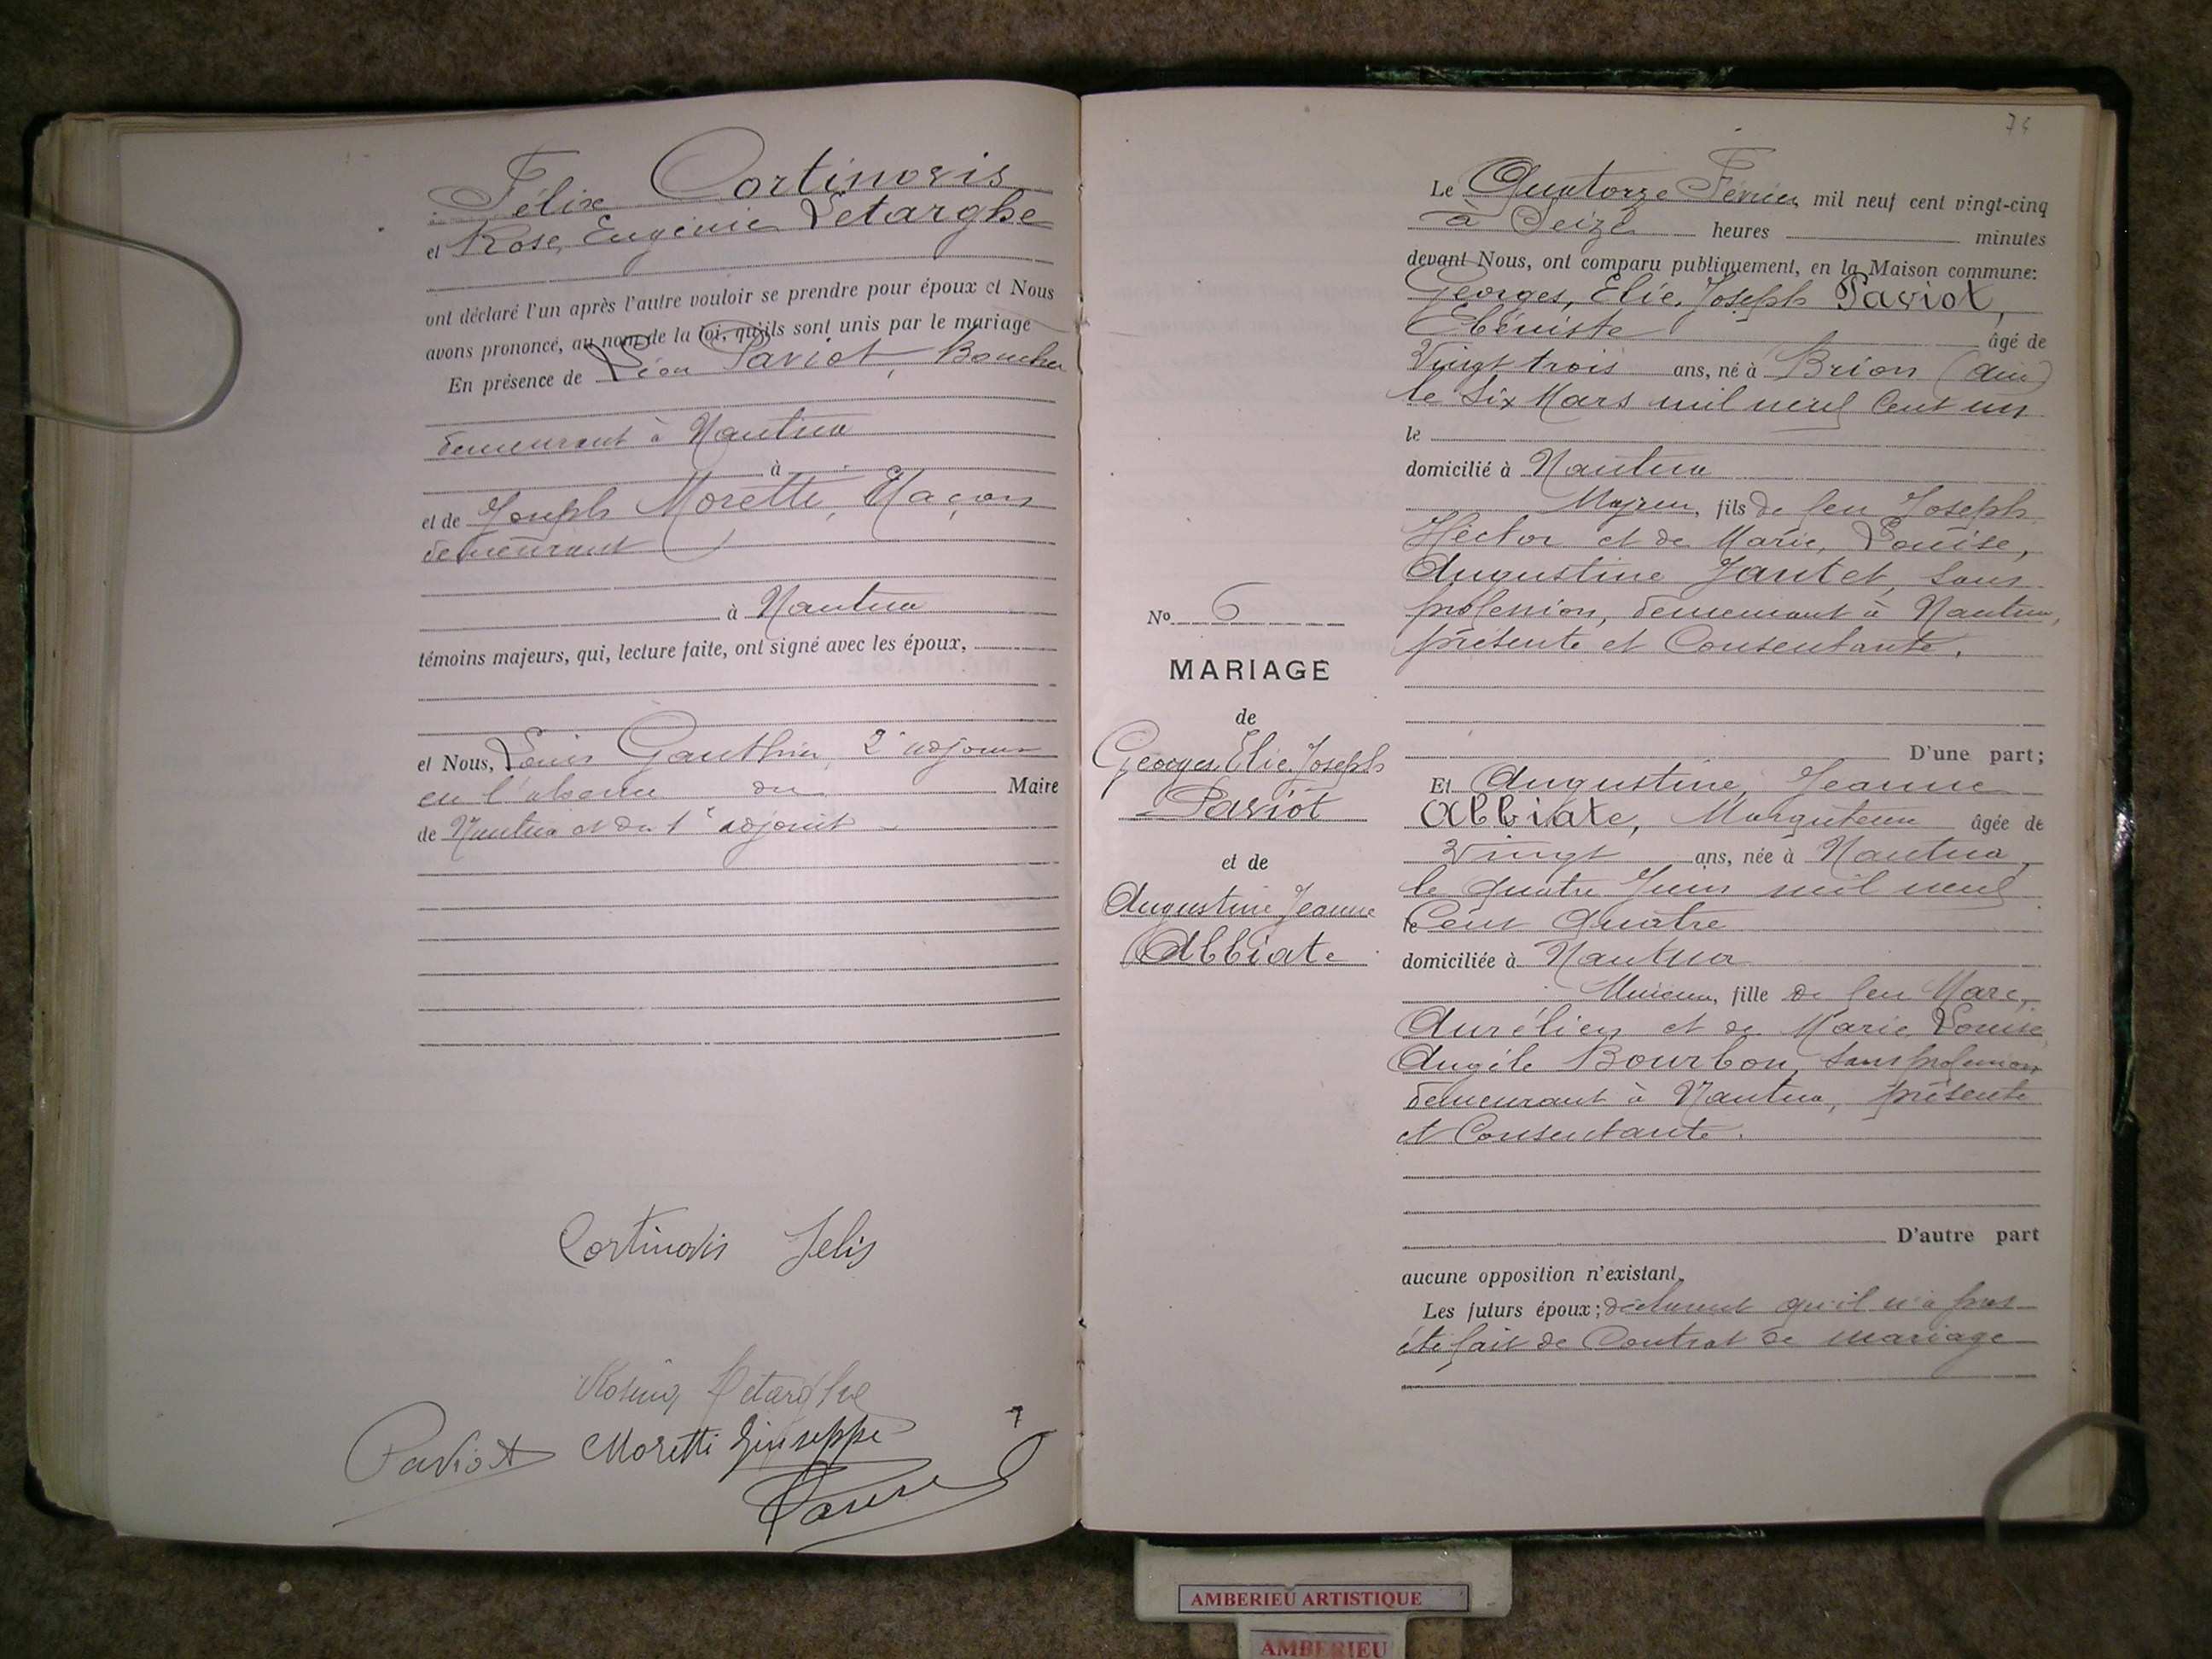 Félix Cortinovis
et Rose, Eugénie Letarghe
ont déclaré l'un après l'autre vouloir se prendre pour époux et Nous
avons prononcé, au nom de la loi, qu'ils sont unis par le mariage
En présence de Léon Paviot, Boucher
demeurant à Nantua
à
et de Joseph Moretti, Maçon
demeurant
à Nantua
témoins majeurs, qui, lecture faite, ont signé avec les époux,
et Nous, Louis Gauthier, 2e adjoint
en l'absence du Maire
de Nantua et du 1er adjoint
Cortinovis Felis
Letarghe
Paviot Moretti Giuseppe
Le Quatorze Février mil neuf cent vingt-cinq
à Seize heures minutes
devant Nous, ont comparu publiquement, en la Maison commune:
Georges, Elie, Joseph Paviot,
Ebéniste âgé de
Vingt trois ans, né à Brion (Ain)
le Six Mars mil neuf Cent un
le
domicilié à Nantua
Majeur, fils de feu Joseph
Héctor et de Marie, Louise,
Augustine Jantet, sans
profession, demeurant à Nantua,
présente et Consentante.
D'une part;
Et Augustine, Jeanne
Abbiate, âgée de
Vingt ans, née à Nantua,
le quatre Juin mil neuf
le Cent Quatre
domiciliée à Nantua
Mineure, fille de feu Marc,
Aurélien et de Marie Louise
Angèle Bourbon, sans profession
demeurant à Nantua, présente
et Consentante.
D'autre part
aucune opposition n'existant,
Les futurs époux; déclarent qu'il n'a pas
été fait de Contrat de mariage
No 6
MARIAGE
de
Georges, Elie, Joseph
Paviot
et de
Augustine Jeanne
Abbiate
AMBERIEU ARTISTIQUE
AMBERIEU